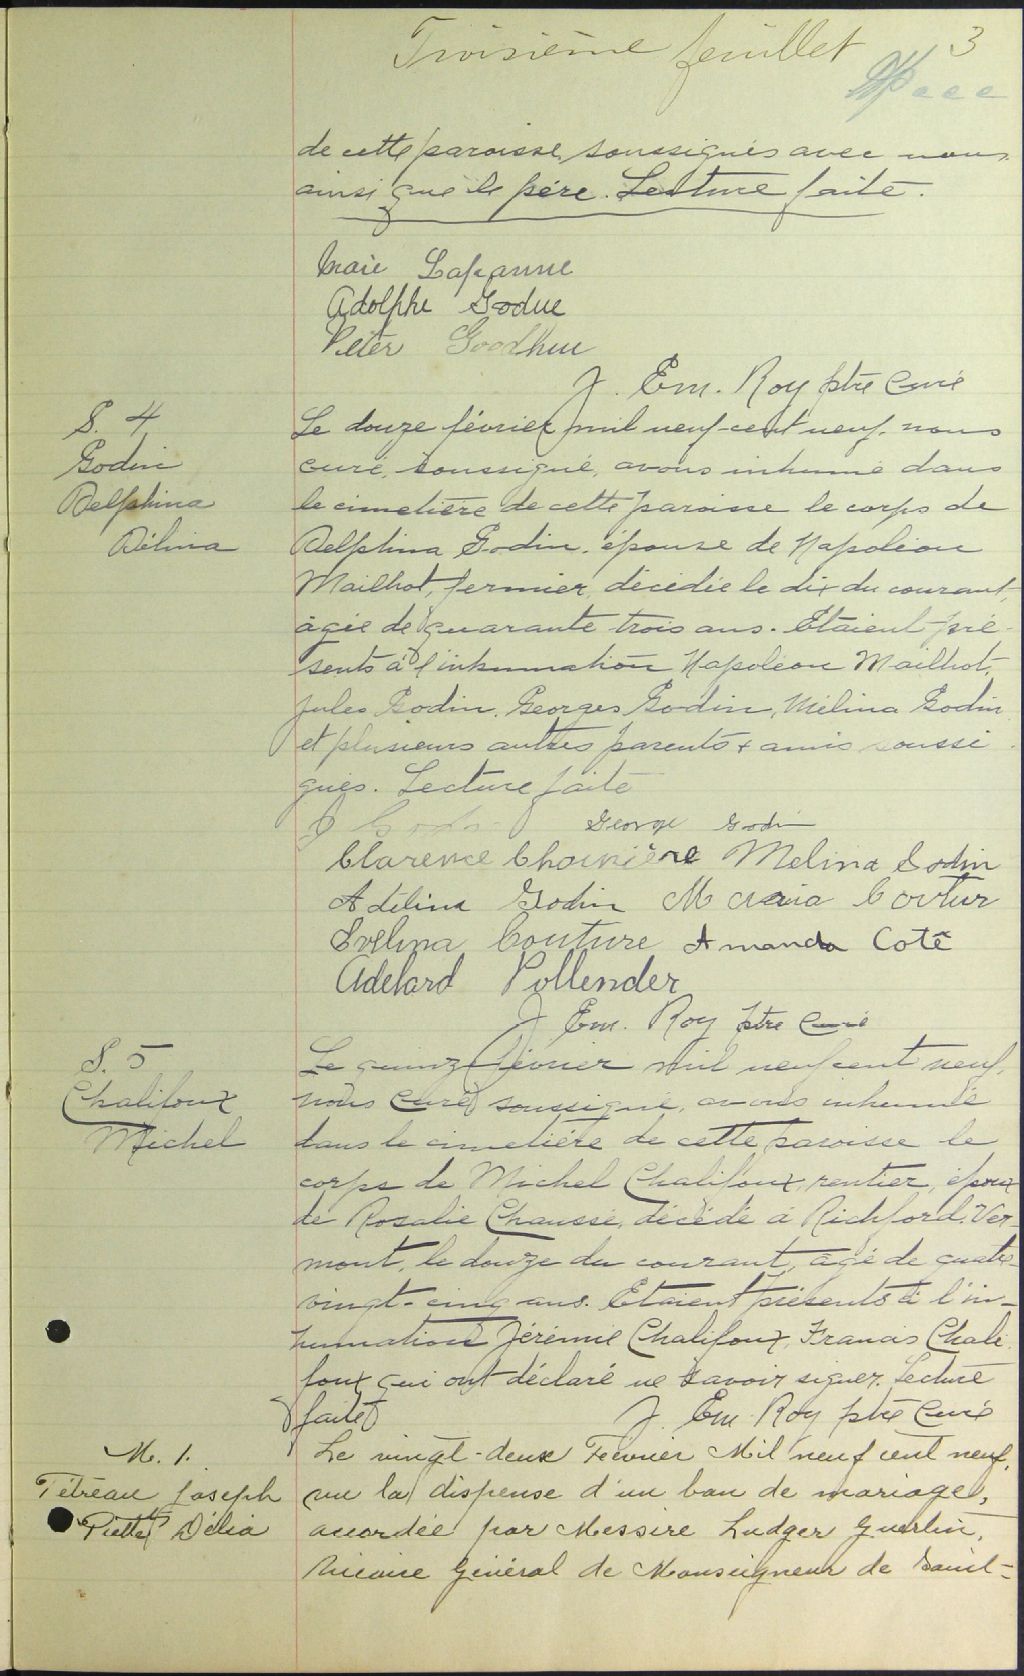 Troisième feuillet 3
de cette paroisse, soussignés avec nous
ainsi que le père. Lecture faite.
Marie Lapanne
Adolphe Godue
Peter Goodhue
J. Em. Roy ptre Curé
S. 4
Godin
Delphina
Délina
Le douze février mil neuf-cent neuf, nous
curé, soussigné, avons inhumé dans
le cimetière de cette paroisse le corps de
Delphina Godin, épouse de Napoléon
Mailhot, fermier, décédée le dix du courant,
âgée de quarante trois ans. Etaient pré-
sents à l'inhumation Napoléon Mailhot,
Jules Godin, Georges Godin, Mélina Godin
et plusieurs autres parents & amis soussi-
gnés. Lecture faite
J Godin George Godin
Clarence Choinière Melina Godin
Adélina Godin M Coutur
Evelina Couture Amanda Coté
Adelard Pollender
J Em. Roy ptre Curé
S. 5
Chalifoux
Michel
Le quinze février mil neuf cent neuf,
nous curé soussigné, avons inhumé
dans le cimetière de cette paroisse le
corps de Michel Chalifoux, rentier, époux
de Rosalie Chaussé, décédé à Richford, Ver-
mont, le douze du courant, âgé de quatre-
vingt-cinq ans. Etaient présents à l'in-
humation Jérémie Chalifoux, Francis Chali
foux qui ont déclaré ne savoir signer. Lecture
faite J. Em. Roy ptre Curé
M. 1.
Tétreau Joseph
Piette Délia
Le vingt-deux Février Mil neuf cent neuf,
vu la dispense d'un ban de mariage,
accordée par Messire Ludger Guertin,
Vicaire Général de Monseigneur de Saint-